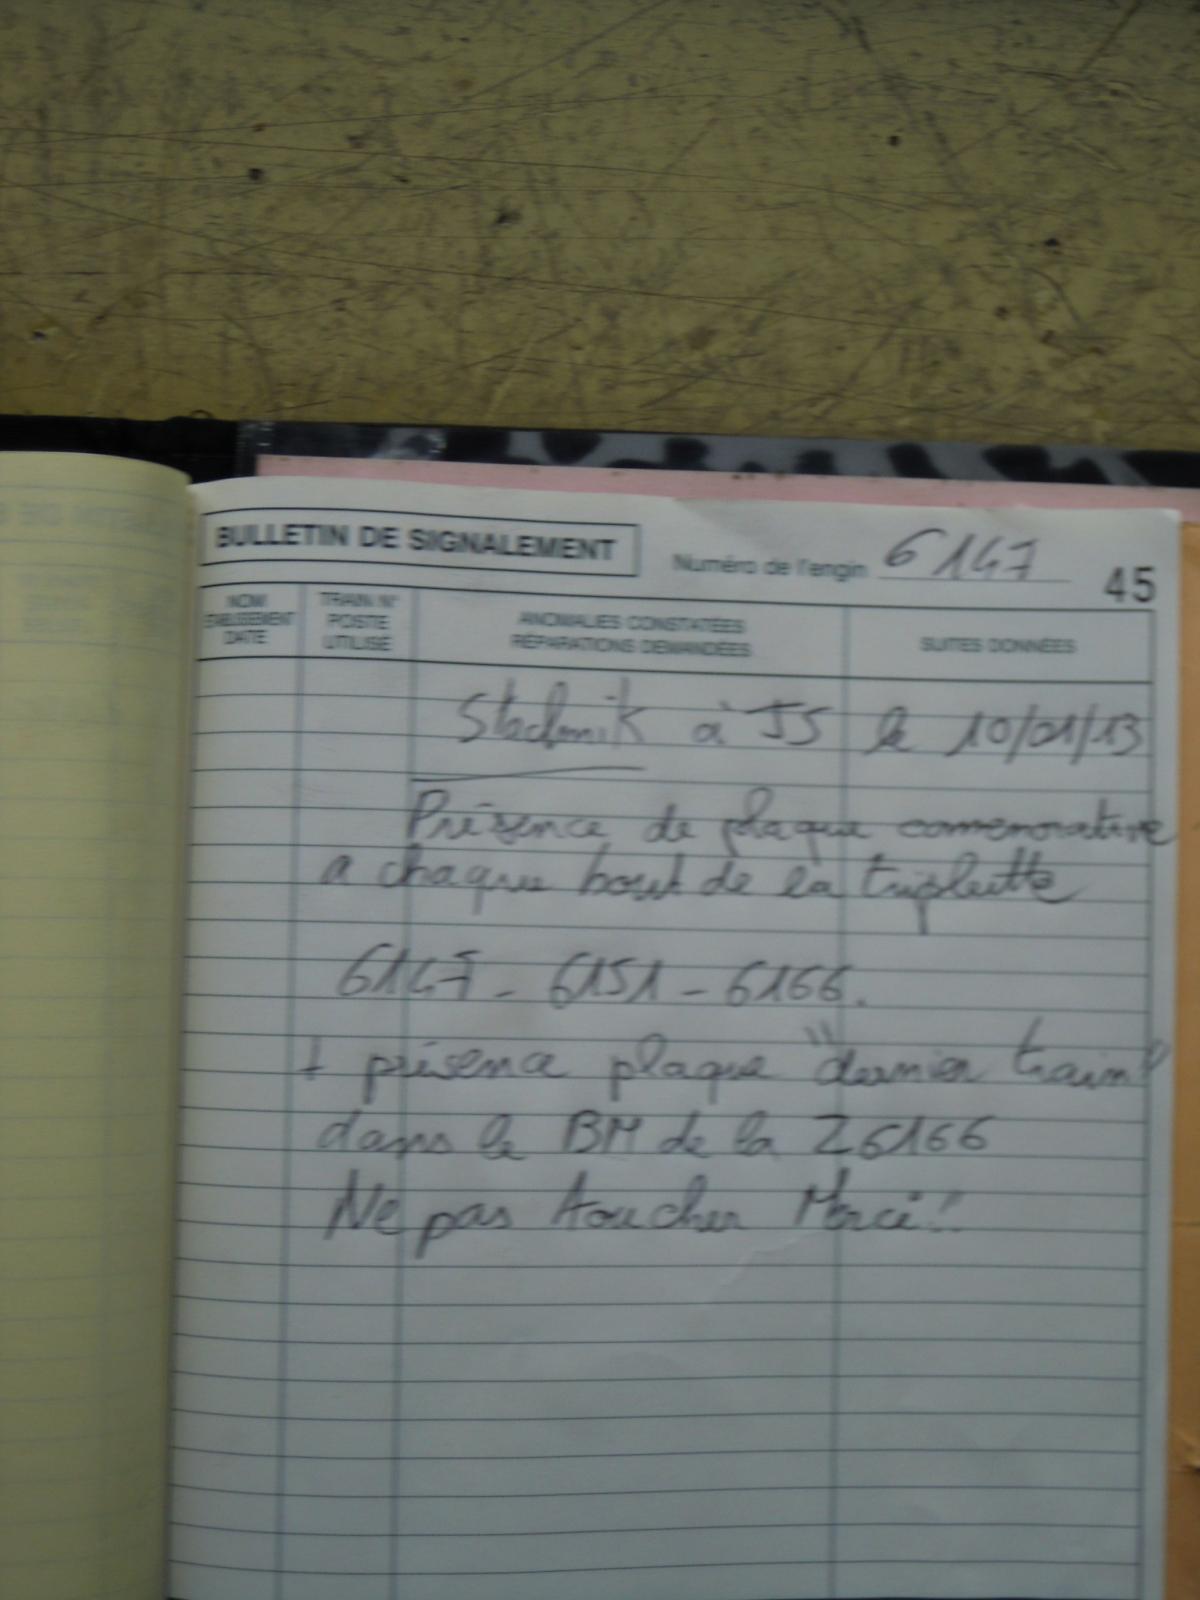 BULLETIN DE SIGNALEMENT
Numéro de l'engin 6147
45
NOM
ETABLISSEMENT
DATE
TRAIN N°
POSTE
UTILISÉ
ANOMALIES CONSTATÉES
RÉPARATIONS DEMANDÉES
SUITES DONNÉES
à JS le 10/01/13
Présence de plaque comenorative
a chaque bout de la triplette
6147 - 6151 - 6166.
+ présence plaque "dernier train"
dans le BM de la Z6166
Ne pas toucher Merci!!